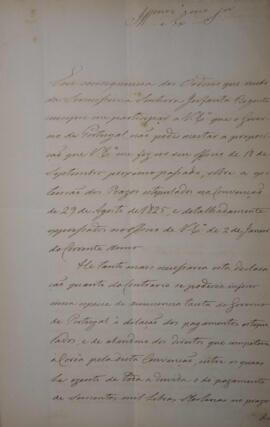 Em consequencia das Ordens que recebi
da Serenissima Senhora Infanta Regente
cumpre me participar a V. Exª que o Gover
no de Portugal não pode aceitar a proposi
ção que V. Exª me fez no seu officio de 18 de
Septembro proximo passado, sobre a
dos Prazos estipulados na Convenção
de 29 de Agosto de 1825, e detalhadamente
expressados no officio de V. Exª de 2 de Janeiro
do Corrente Anno.
He tanto mais necessaria esta declara
ção quanto do Contrario se poderia inferir
uma especie de annuencia tanto do Governo
de Portugal á dilação dos pagamentos estipu
lados, e de abandono dos direitos que competem
á Corôa pela dita Convenção, entre os quaes
he o pagamento
de seiscentas mil Libras Sterlinas no prazo